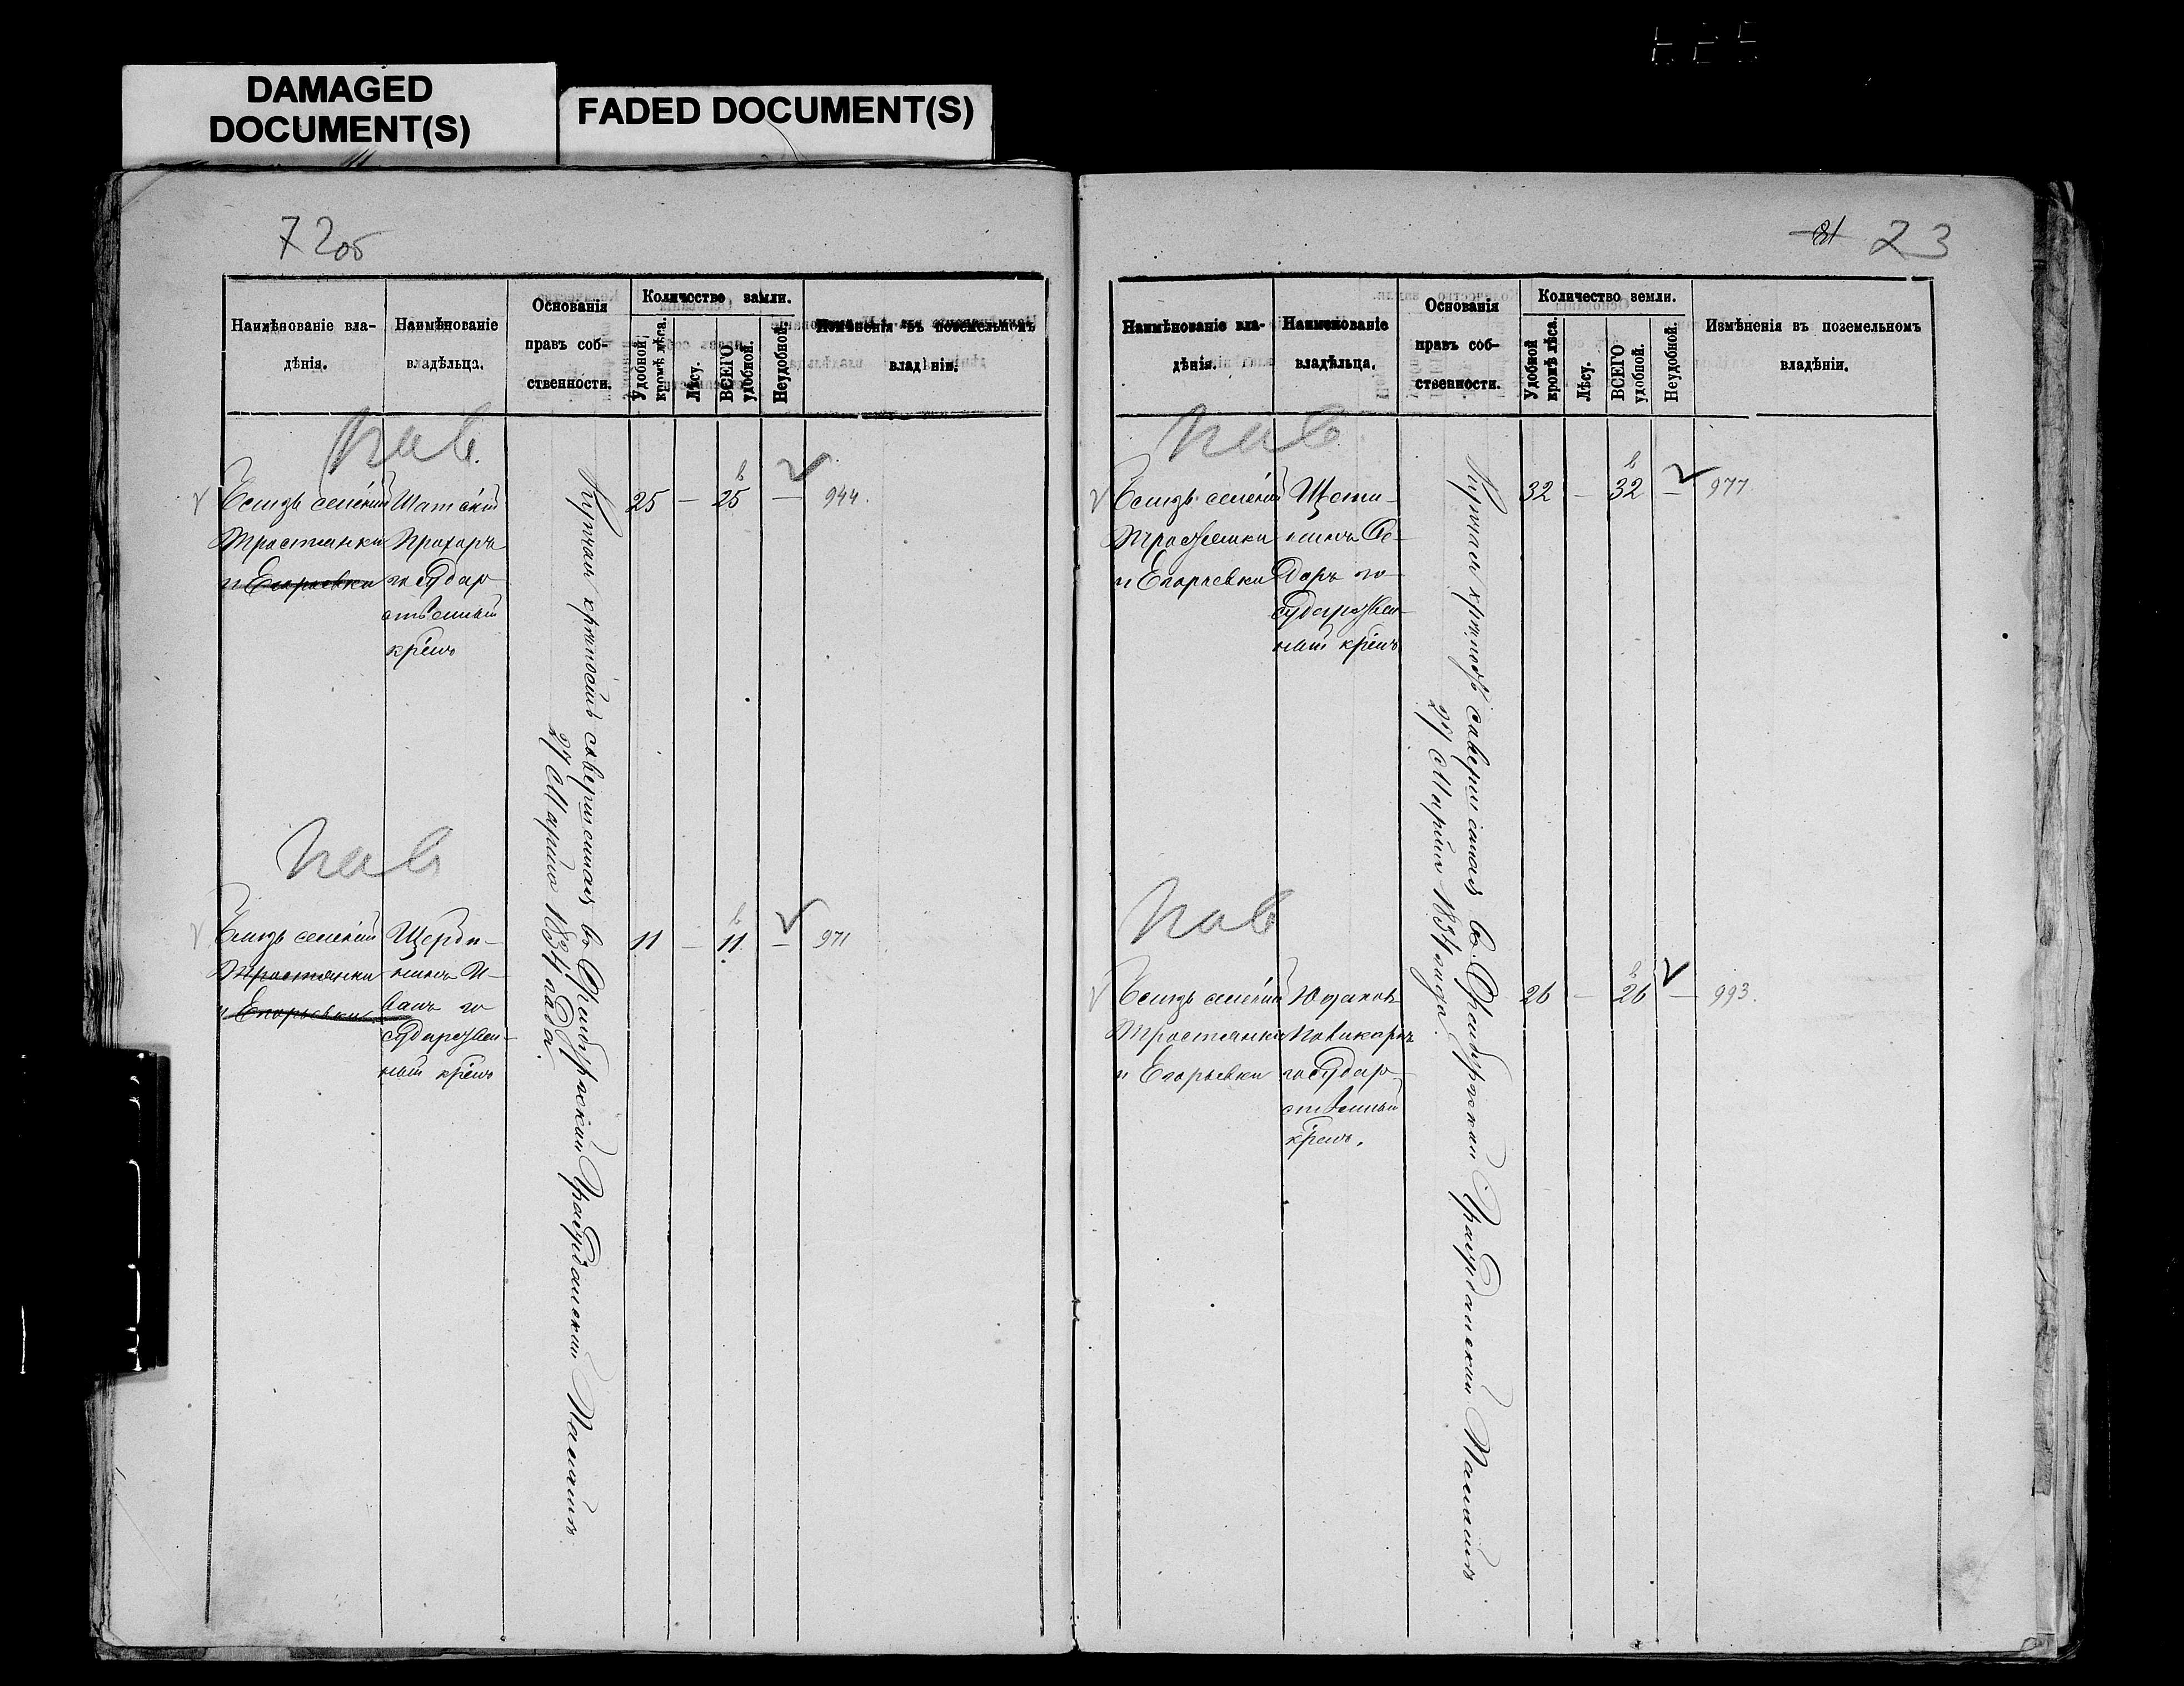 DAMAGED
DOCUMENT(S)
FADED DOCUMENT(S)
7 2об
Наимѣнованіе вла-
дѣнія.
Наимѣнованіе
владѣльца.
Основанія
правъ соб-
ственности.
Количество земли.
Удобной,
кромѣ лѣса.
Лѣсу.
ВСЕГО
удобной.
Неудобной.
Измѣненія въ поземельномъ
владѣніи.
Близь селеній
Тростянки
и Егорьевки
Шатскій
Прохоръ
государ
ственный
крѣнъ
Купчая крѣпость совершенная въ Оренбургской Гражданской Палатѣ
27 Марта 1834 года.
25 — 25 — 944.
Близь селеній
Тростянки
и Егорьевки
Щерби-
нинъ И-
ванъ го
сударствен-
ный крѣнъ
11 — 11 — 971
81 23
Наимѣнованіе вла-
дѣнія.
Наименованіе
владѣльца.
Основанія
правъ соб-
ственности.
Количество земли.
Удобной
кромѣ лѣса.
Лѣсу.
ВСЕГО
удобной.
Неудобной.
Измѣненія въ поземельномъ
владѣніи.
Близь селеній
Тростянки
и Егорьевки
Ѳе-
доръ го-
сударствен-
ный крѣнъ
Купчая крѣпость совершенная въ Оренбургской Гражданской Палатѣ
27 Марта 1834 года.
32 — 32 — 977
Близь селеній
Тростянки
и Егорьевки
Поликарпъ
государ-
ственный
крѣнъ.
26 — 26 — 993.